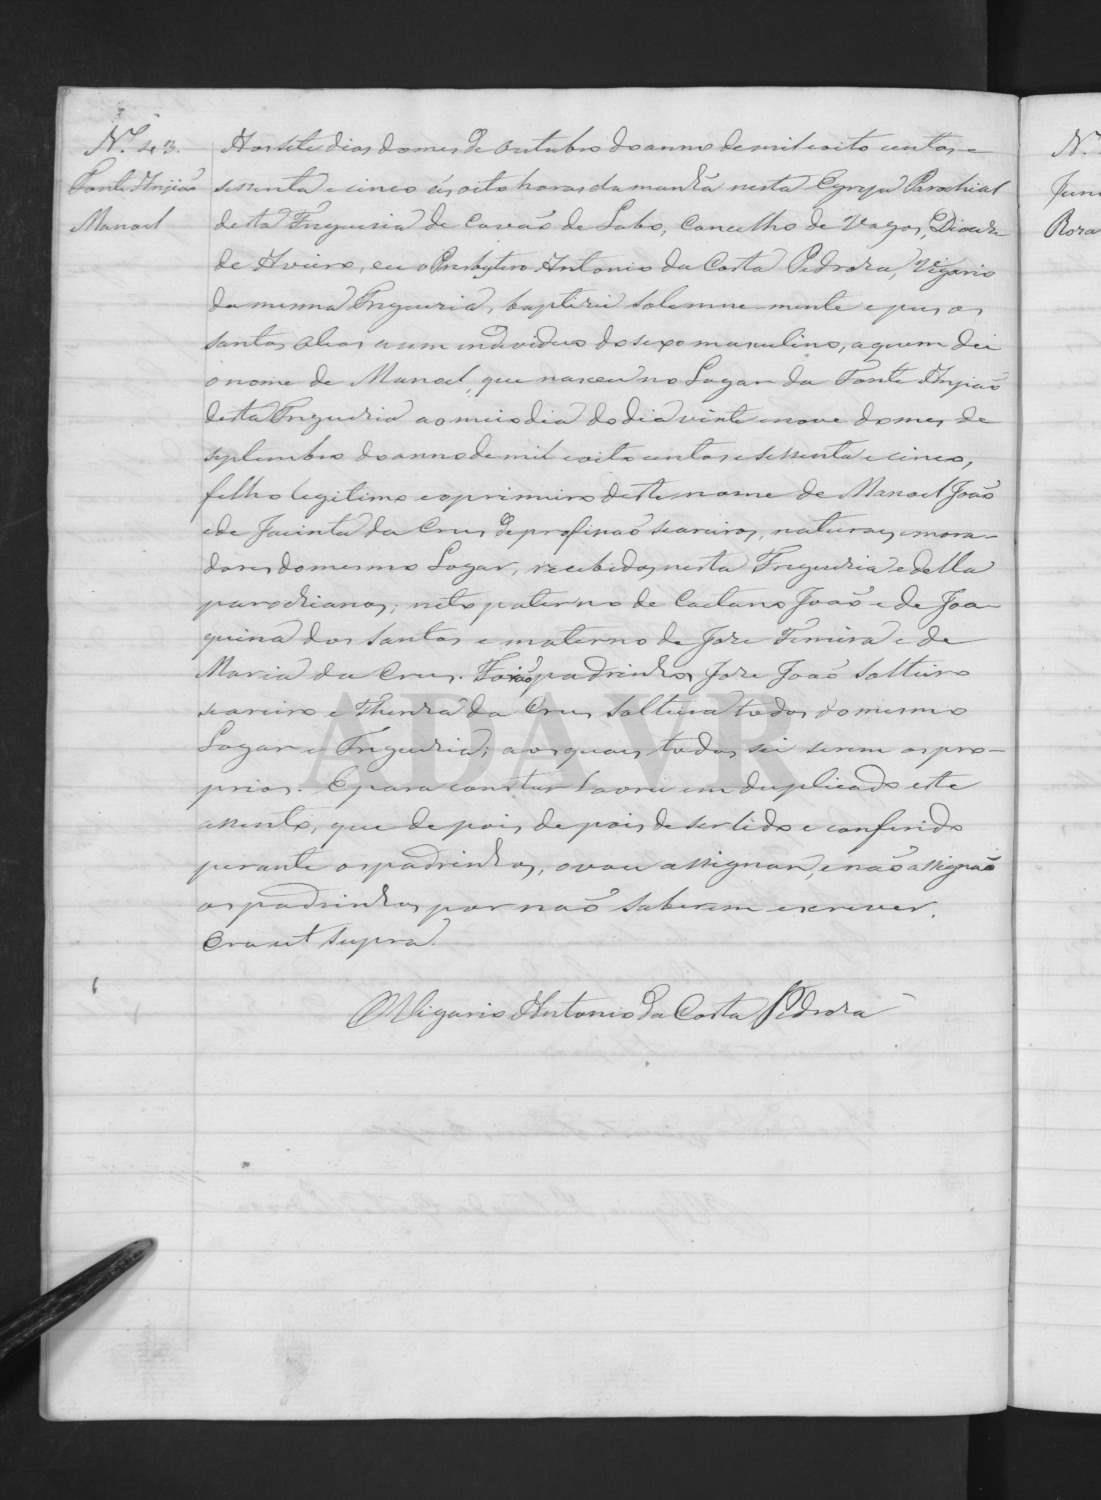 N.º 43.
Fonte Angião
Manoel
Aos sete dias do mes de outubro do anno de mil oito centos e
sessenta e cinco ás oito horas da manhã nesta Egreja Parochial
desta Freguesia de Covão de Lobo, Concelho de Vagos, Diocese
de Aveiro, eu o Presbytero Antonio da Costa Pedroza, Vigario
da mesma Freguesia, baptizei solemne-mente e pus os
santos oleos a um individuo do sexo masculino, a quem dei
o nome de Manoel, que nasceu no Lugar da Fonte Angião
desta Freguesia ao meio dia do dia vinte e nove do mes de
septembro do anno de mil e oito centos e sessenta e cinco,
filho legitimo e o primeiro deste nome de Manoel João
e de Jacinta da Crus de profissão seareiros, naturaes e mora-
dores do mesmo Logar, recebidos nesta Freguesia e della
parochianos; neto paterno de Caetano João e de Joa-
quina dos Santos e materno de Joze Ferreira e de
Maria da Crus. Forão padrinhos Joze João Solteiro
seareiro e Thereza da Crus Solteira todos do mesmo
Logar e Freguesia; aos quaes todos sei serem os pro-
prios. E para constar lavrei em duplicado este
assento, que depois depois de ser lido e conferido
perante os padrinhos, o vou assignar, e não assignão
os padrinhos por não saberem escrever.
Era ut supra.
O Vigario Antonio da Costa Pedroza
N.º
Rosa
ADAVR